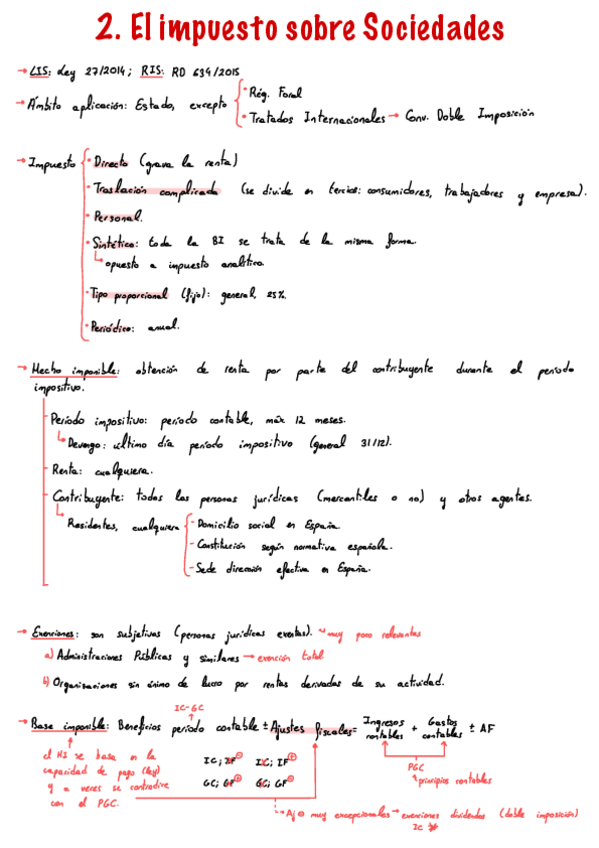 2. El impuesto sobre Sociedades
→ LIS: Ley 27/2014; RIS: RD 634/2015
→ Ámbito aplicación: Estado, excepto
· Rég. Foral
· Tratados Internacionales → Conv. Doble Imposición
→ Impuesto
· Directo (grava la renta)
· Traslación complicada (se divide en tercios: consumidores, trabajadores y empresa).
· Personal.
· Sintético: toda la BI se trata de la misma forma.
↳ opuesto a impuesto analítico.
· Tipo proporcional (fijo): general, 25%.
· Periódico: anual.
→ Hecho imponible: obtención de renta por parte del contribuyente durante el periodo
impositivo.
- Período impositivo: período contable, máx 12 meses.
↳ Devengo: último día período impositivo (general 31/12).
- Renta: cualquiera.
- Contribuyente: todas las personas jurídicas (mercantiles o no) y otros agentes.
↳ Residentes, cualquiera
- Domicilio social en España.
- Constitución según normativa española.
- Sede dirección efectiva en España.
→ Exenciones: son subjetivas (personas jurídicas exentas). → muy poco relevantes
a) Administraciones Públicas y similares → exención total
b) Organizaciones sin ánimo de lucro por rentas derivadas de su actividad.
IC-GC
→ Base imponible: Beneficios período contable ± Ajustes fiscales = Ingresos contables + Gastos contables ± AF
el HI se basa en la
capacidad de pago (ley)
y a veces se contradice
con el PGC.
IC; IF⊕ IC; IF⊖
GC; GF⊖ GC; GF⊕
PGC
principios contables
→ Aj ⊖ muy excepcionales → exenciones dividendos (doble imposición)
IC